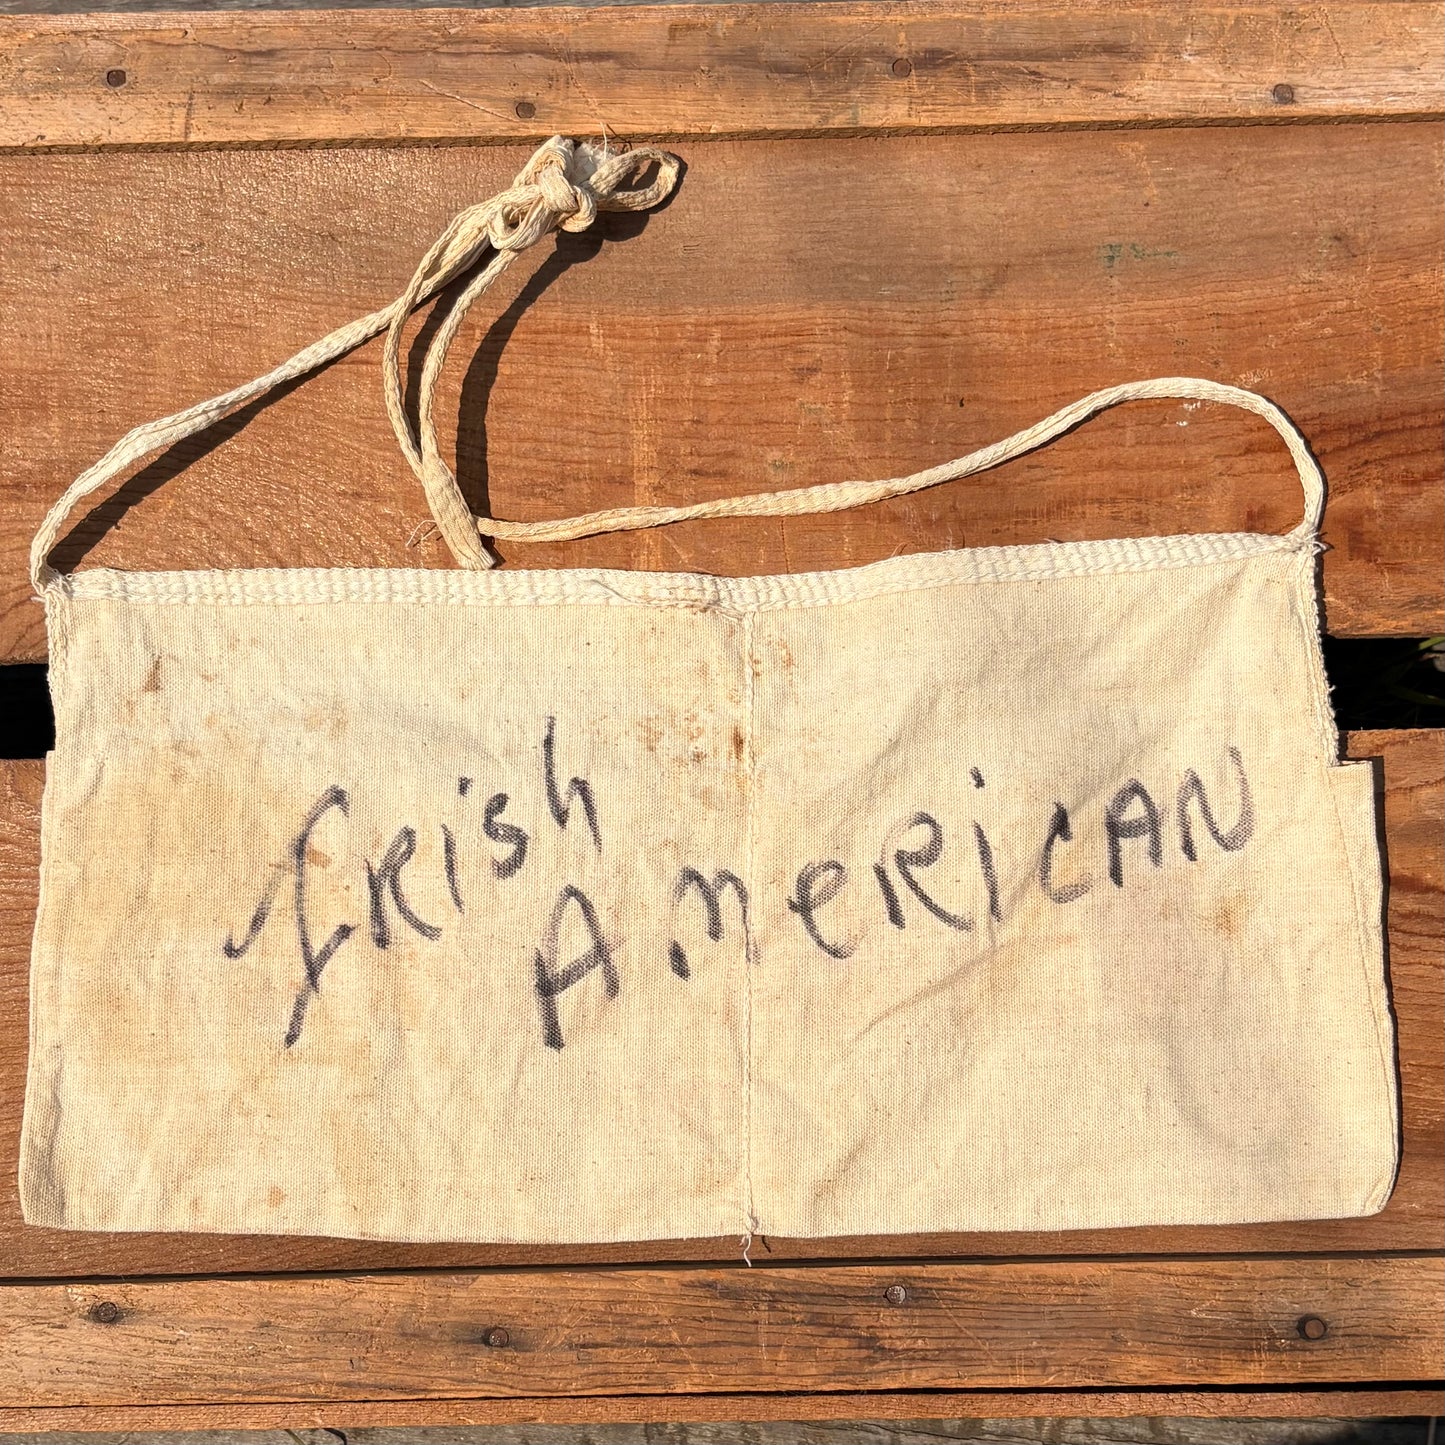 IRish
AmeRiCAN